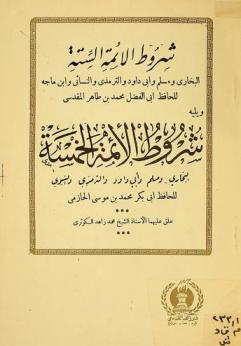 شروط الأئمة الستة
البخارى ومسلم وابى داود والترمذى والنسائى وابن ماجه
للحافظ أبى الفضل محمد بن طاهر المقدسى
ويليه
شروط الأئمة الخمسة
البخاري ومسلم وأبي داود والترمذي والنسائي
للحافظ أبى بكر محمد بن موسى الحازمى
علق عليهما الأستاذ الشيخ محمد زاهد الكوثرى